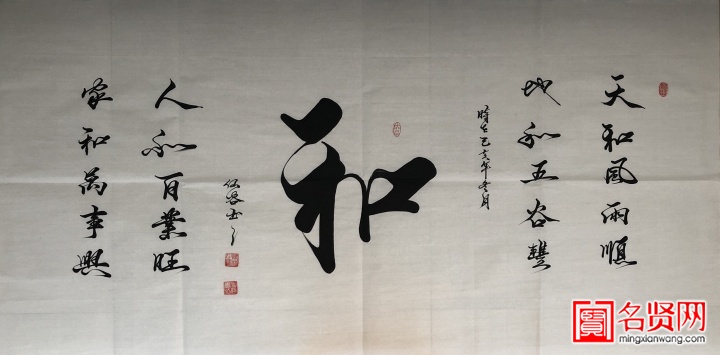 天和風雨順
地和五谷豐
時在己亥年冬月
和
人和百業旺
家和萬事興
名贤网
mingxianwang.com